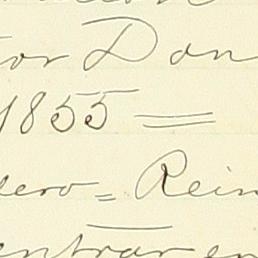 or Don
1855 =
dero = Rein
entrar en